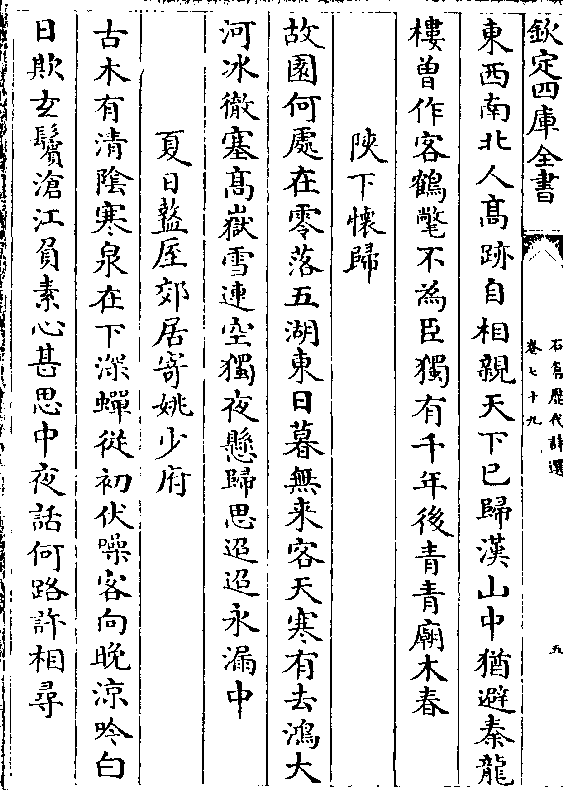 欽定四庫全書
石倉歷代詩選
卷七十九
五
東西南北人高跡自相親天下已歸漢山中猶避秦龍
樓曽作客鶴氅不為臣獨有千年後青青廟木春
陜下懷歸
故園何處在零落五湖東日暮無来客天寒有去鴻大
河冰徹塞高嶽雪連空獨夜懸歸思迢迢永漏中
夏日盩厔郊居寄姚少府
古木有清陰寒泉在下深蟬從初伏噪客向晚涼吟白
日欺玄鬢滄江負素心甚思中夜話何路許相尋